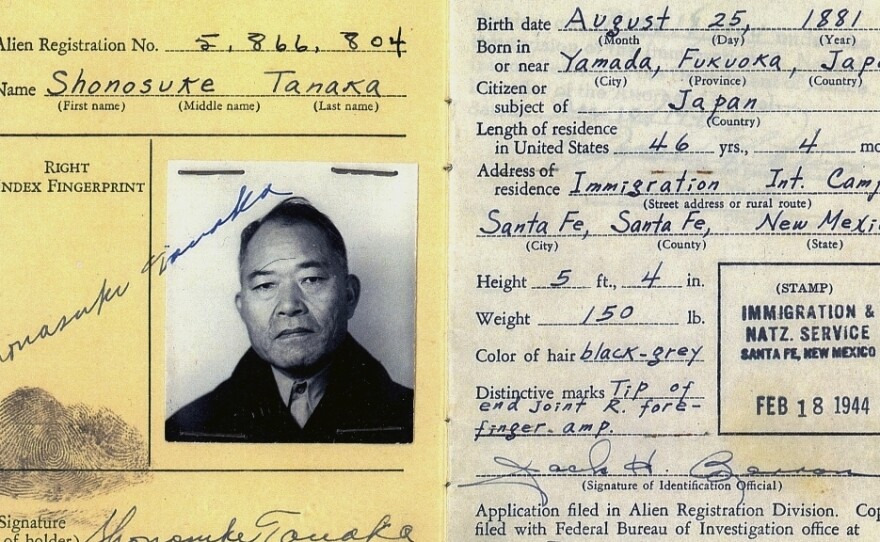 Alien Registration No. 5,866,804
Name Shonosuke Tanaka
(First name) (Middle name) (Last name)
RIGHT
INDEX FINGERPRINT
Shonosuke Tanaka
Signature
of holder) Shonosuke Tanaka
Birth date August 25, 1881
(Month (Day) (Year)
Born in
or near Yamada, Fukuoka, Japa
(City) (Province) (Country)
Citizen or
subject of Japan
(Country)
Length of residence
in United States 46 yrs., 4 mo
Address of
residence Immigration Int. Camp
(Street address or rural route)
Santa Fe, Santa Fe, New Mexic
(City) (County) (State)
Height 5 ft., 4 in.
Weight 150 lb.
Color of hair black-grey
Distinctive marks Tip of
end joint R. fore-
finger. amp.
(STAMP)
IMMIGRATION &
NATZ. SERVICE
SANTA FE, NEW MEXICO
FEB 18 1944
Jack H.
(Signature of Identification Official)
Application filed in Alien Registration Division. Cop
filed with Federal Bureau of Investigation office at